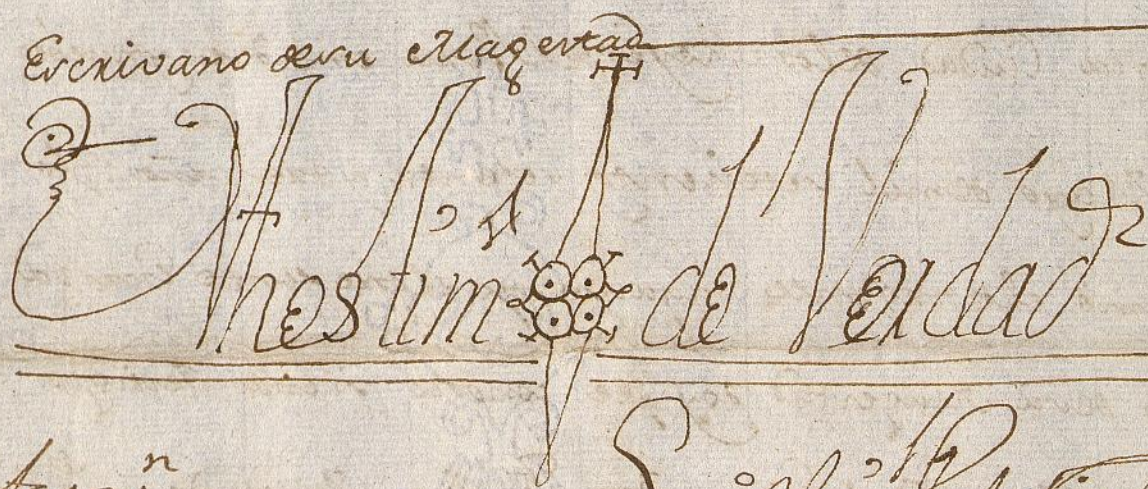 Escrivano de su Magestad
En thestimº de Verdad